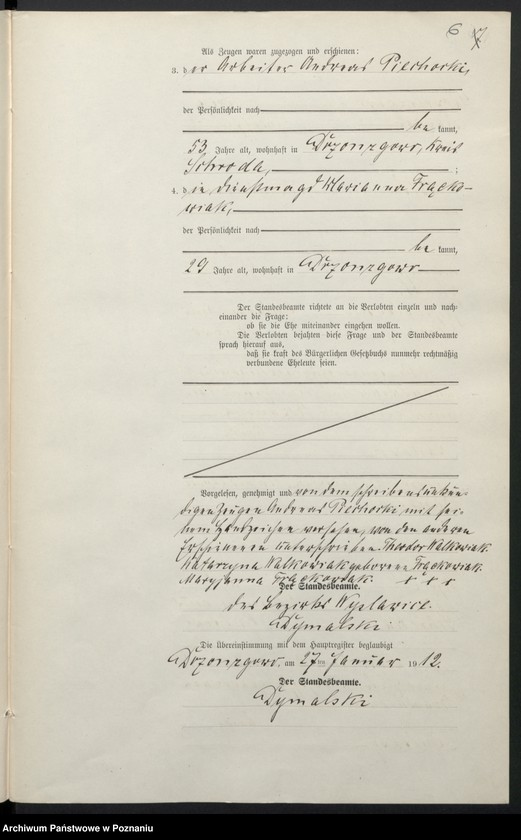 6 7
Als Zeugen waren zugezogen und erschienen:
3. der Arbeiter Andreas Piechocki,
der Persönlichkeit nach
be kannt,
53 Jahre alt, wohnhaft in Drzonzgowo, Kreis
Schroda, ;
4. die Dienstmagd Marianna Frącko-
wiak,
der Persönlichkeit nach
be kannt,
29 Jahre alt, wohnhaft in Drzonzgowo
Der Standesbeamte richtete an die Verlobten einzeln und nach-
einander die Frage:
ob sie die Ehe miteinander eingehen wollen.
Die Verlobten bejahten diese Frage und der Standesbeamte
sprach hierauf aus,
daß sie kraft des Bürgerlichen Gesetzbuchs nunmehr rechtmäßig
verbundene Eheleute seien.
Vorgelesen, genehmigt und von dem schreibensunkun-
digen Zeugen Andreas Piechocki mit sei-
nem Handzeichen versehen, von den anderen
Erschienenen unterschrieben. Theodor Walkowiak.
Katarzyna Walkowiak geborene Frąckowiak.
Maryjanna Frąckowiak. + + +
Der Standesbeamte.
des Bezirks Wyslawice.
Dymalski
Die Übereinstimmung mit dem Hauptregister beglaubigt
Drzonzgowo, am 27ten Januar 1912.
Der Standesbeamte.
Dymalski
Archiwum Państwowe w Poznaniu